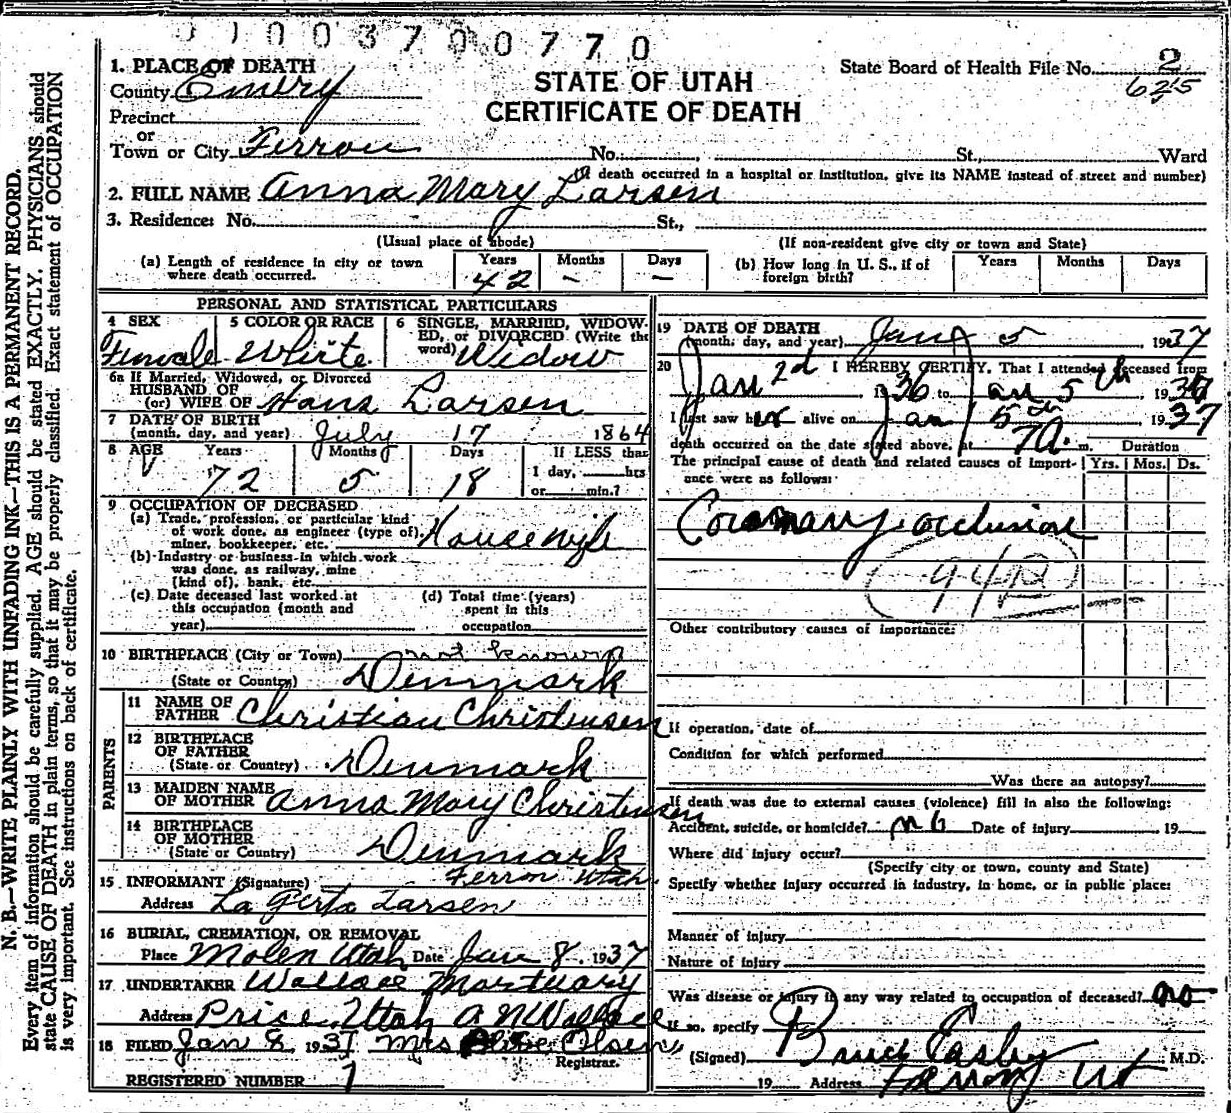 0 1 0 0 3 7 0 0 7 7 0
1. PLACE OF DEATH
County Emery
Precinct
or
Town or City Ferron No. St., Ward
STATE OF UTAH
CERTIFICATE OF DEATH
State Board of Health File No. 2
625
(If death occurred in a hospital or institution, give its NAME instead of street and number)
2. FULL NAME Anna Mary Larsen
3. Residence: No. St.,
(Usual place of abode) (If non-resident give city or town and State)
(a) Length of residence in city or town where death occurred. Years 42 Months — Days —
(b) How long in U. S., if of foreign birth? Years Months Days
PERSONAL AND STATISTICAL PARTICULARS
4 SEX Female
5 COLOR OR RACE White
6 SINGLE, MARRIED, WIDOWED, or DIVORCED (Write the word) Widow
6a If Married, Widowed, or Divorced
HUSBAND OF
(or) WIFE OF Hans Larsen
7 DATE OF BIRTH
(month, day, and year) July 17 1864
8 AGE Years 72 Months 5 Days 18
If LESS than
1 day, hrs
or min.?
9 OCCUPATION OF DECEASED
(a) Trade, profession, or particular kind
of work done, as engineer (type of),
miner, bookkeeper, etc. Housewife
(b) Industry or business in which work
was done, as railway, mine
(kind of), bank, etc.
(c) Date deceased last worked at
this occupation (month and
year)
(d) Total time (years)
spent in this
occupation
10 BIRTHPLACE (City or Town) not known
(State or Country) Denmark
PARENTS
11 NAME OF
FATHER Christian Christensen
12 BIRTHPLACE
OF FATHER
(State or Country) Denmark
13 MAIDEN NAME
OF MOTHER Anna Mary Christensen
14 BIRTHPLACE
OF MOTHER
(State or Country) Denmark
15 INFORMANT (Signature) Ferron Utah
Address La Gerta Larsen
16 BURIAL, CREMATION, OR REMOVAL
Place Molen Utah Date Jan 8, 1937
17 UNDERTAKER Wallace Mortuary
Address Price, Utah A N Wallace
18 FILED Jan 8 1937 Mrs Olsen
Registrar.
REGISTERED NUMBER 1
19 DATE OF DEATH
(month, day, and year) Jan 5 1937
20 I HEREBY CERTIFY, That I attended deceased from
Jan 2d 1936 to Jan 5th, 19
I last saw her alive on Jan 5th 1937
death occurred on the date stated above, at 7 a. m.
Duration
The principal cause of death and related causes of importance were as follows: Yrs. Mos. Ds.
Coronary occlusion
94
Other contributory causes of importance:
If operation, date of
Condition for which performed
Was there an autopsy?
If death was due to external causes (violence) fill in also the following:
Accident, suicide, or homicide? no Date of injury 19
Where did injury occur?
(Specify city or town, county and State)
Specify whether injury occurred in industry, in home, or in public place:
Manner of injury
Nature of injury
Was disease or injury in any way related to occupation of deceased? no
If so, specify
(Signed) Bruce Easley M.D.
19 Address Ferron Ut
N. B.—WRITE PLAINLY WITH UNFADING INK—THIS IS A PERMANENT RECORD.
Every item of information should be carefully supplied. AGE should be stated EXACTLY. PHYSICIANS should
state CAUSE OF DEATH in plain terms, so that it may be properly classified. Exact statement of OCCUPATION
is very important. See instructions on back of certificate.